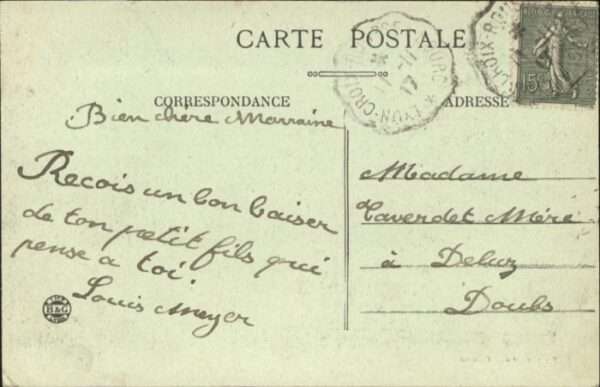 CARTE POSTALE
CORRESPONDANCE
ADRESSE
Bien chère Marraine
Recois un bon baiser
de ton petit fils qui
pense a toi
Louis Meyer
B&G
Madame
Taverdet Mère
à Deluz
Doubs
15c